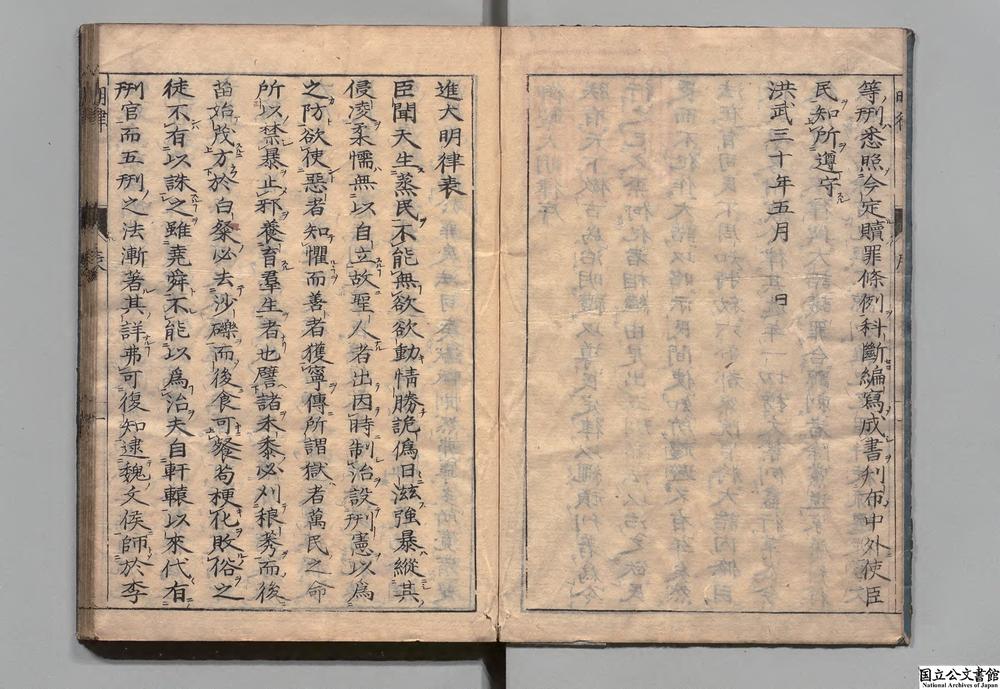 等刑悉照今定贖罪條例科斷編寫成書刋布中外使臣
民知所遵守
洪武三十年五月　日
進大明律表
臣聞天生蒸民不能無欲欲動情勝詭偽日滋強暴縱其
侵凌柔懦無以自立故聖人者出因時制治設刑憲以為
之防欲使惡者知懼而善者獲寧傳所謂獄者萬民之命
所以禁暴止邪養育羣生者也譬諸禾黍必刈稂莠而後
苗始茂方於白粲必去沙礫而後食可餐苟梗化敗俗之
徒不有以誅之雖堯舜不能以為治夫自軒轅以來代有
刑官而五刑之法漸著其詳弗可復知逮魏文侯師於李
明律
表
一
国立公文書館
National Archives of Japan